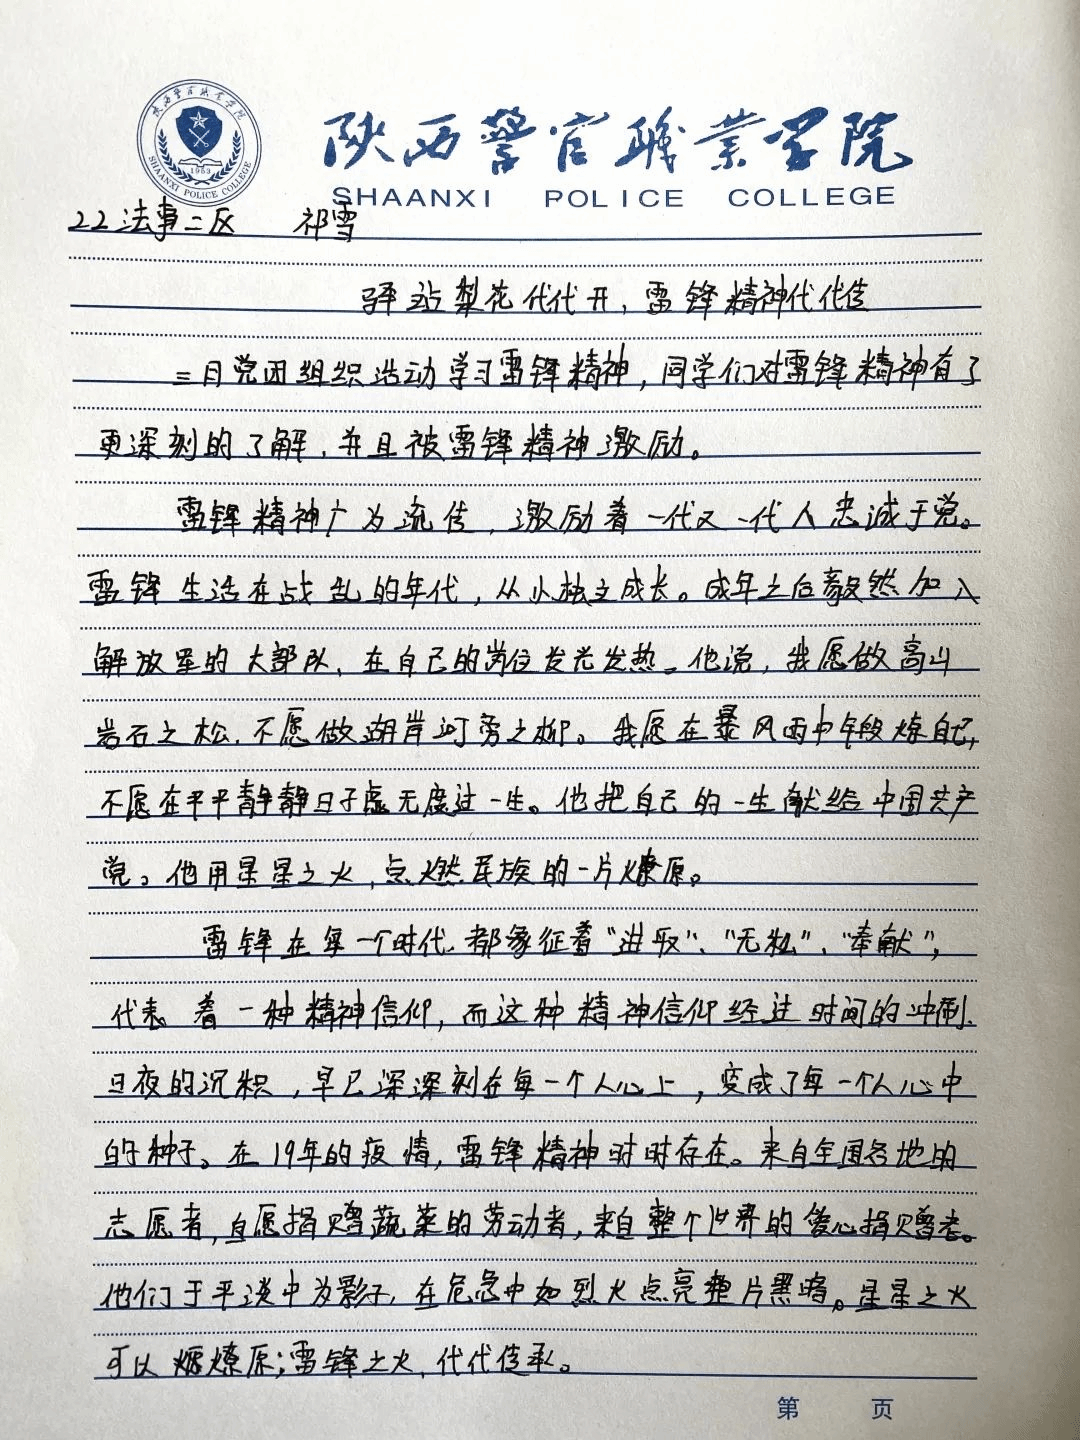 陕西警官职业学院
SHAANXI POLICE COLLEGE
陕西警官职业学院
1953
SHAANXI POLICE COLLEGE
22法事二区 祁雪
驿站梨花代代开，雷锋精神代代传
三月党团组织活动学习雷锋精神，同学们对雷锋精神有了
更深刻的了解，并且被雷锋精神激励。
雷锋精神广为流传，激励着一代又一代人忠诚于党。
雷锋生活在战乱的年代，从小独立成长。成年之后毅然加入
解放军的大部队，在自己的岗位发光发热。他说，我愿做高山
岩石之松，不愿做湖岸河旁之柳。我愿在暴风雨中锻炼自己，
不愿在平平静静日子虚无度过一生。他把自己的一生献给中国共产
党。他用星星之火，点燃民族的一片燎原。
雷锋在每一个时代，都象征着“进取”、“无私”、“奉献”，
代表着一种精神信仰，而这种精神信仰经过时间的冲刷、
日夜的沉积，早已深深刻在每一个人心上，变成了每一个人心中
的种子。在19年的疫情，雷锋精神时时存在。来自全国各地的
志愿者，自愿捐赠蔬菜的劳动者，来自整个世界的爱心捐赠者。
他们于平淡中为影子，在危急中如烈火点亮整片黑暗。星星之火
可以燎原；雷锋之火，代代传承。
第 页